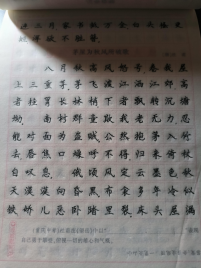 三月家书抵万金白头搔更
短浑欲不胜簪
茅屋为秋风所破歌
八月秋高风怒号,卷我屋
上三重茅。茅飞渡江洒江郊,高
者挂罥长林梢,下者飘转沉塘
坳。南村群童欺我老无力,忍
能对面为盗贼,公然抱茅入竹
去。唇焦口燥呼不得,归来倚杖
自叹息。俄顷风定云墨色,秋
天漠漠向昏黑。布衾多年冷似
铁,娇儿恶卧踏里裂。床头屋漏